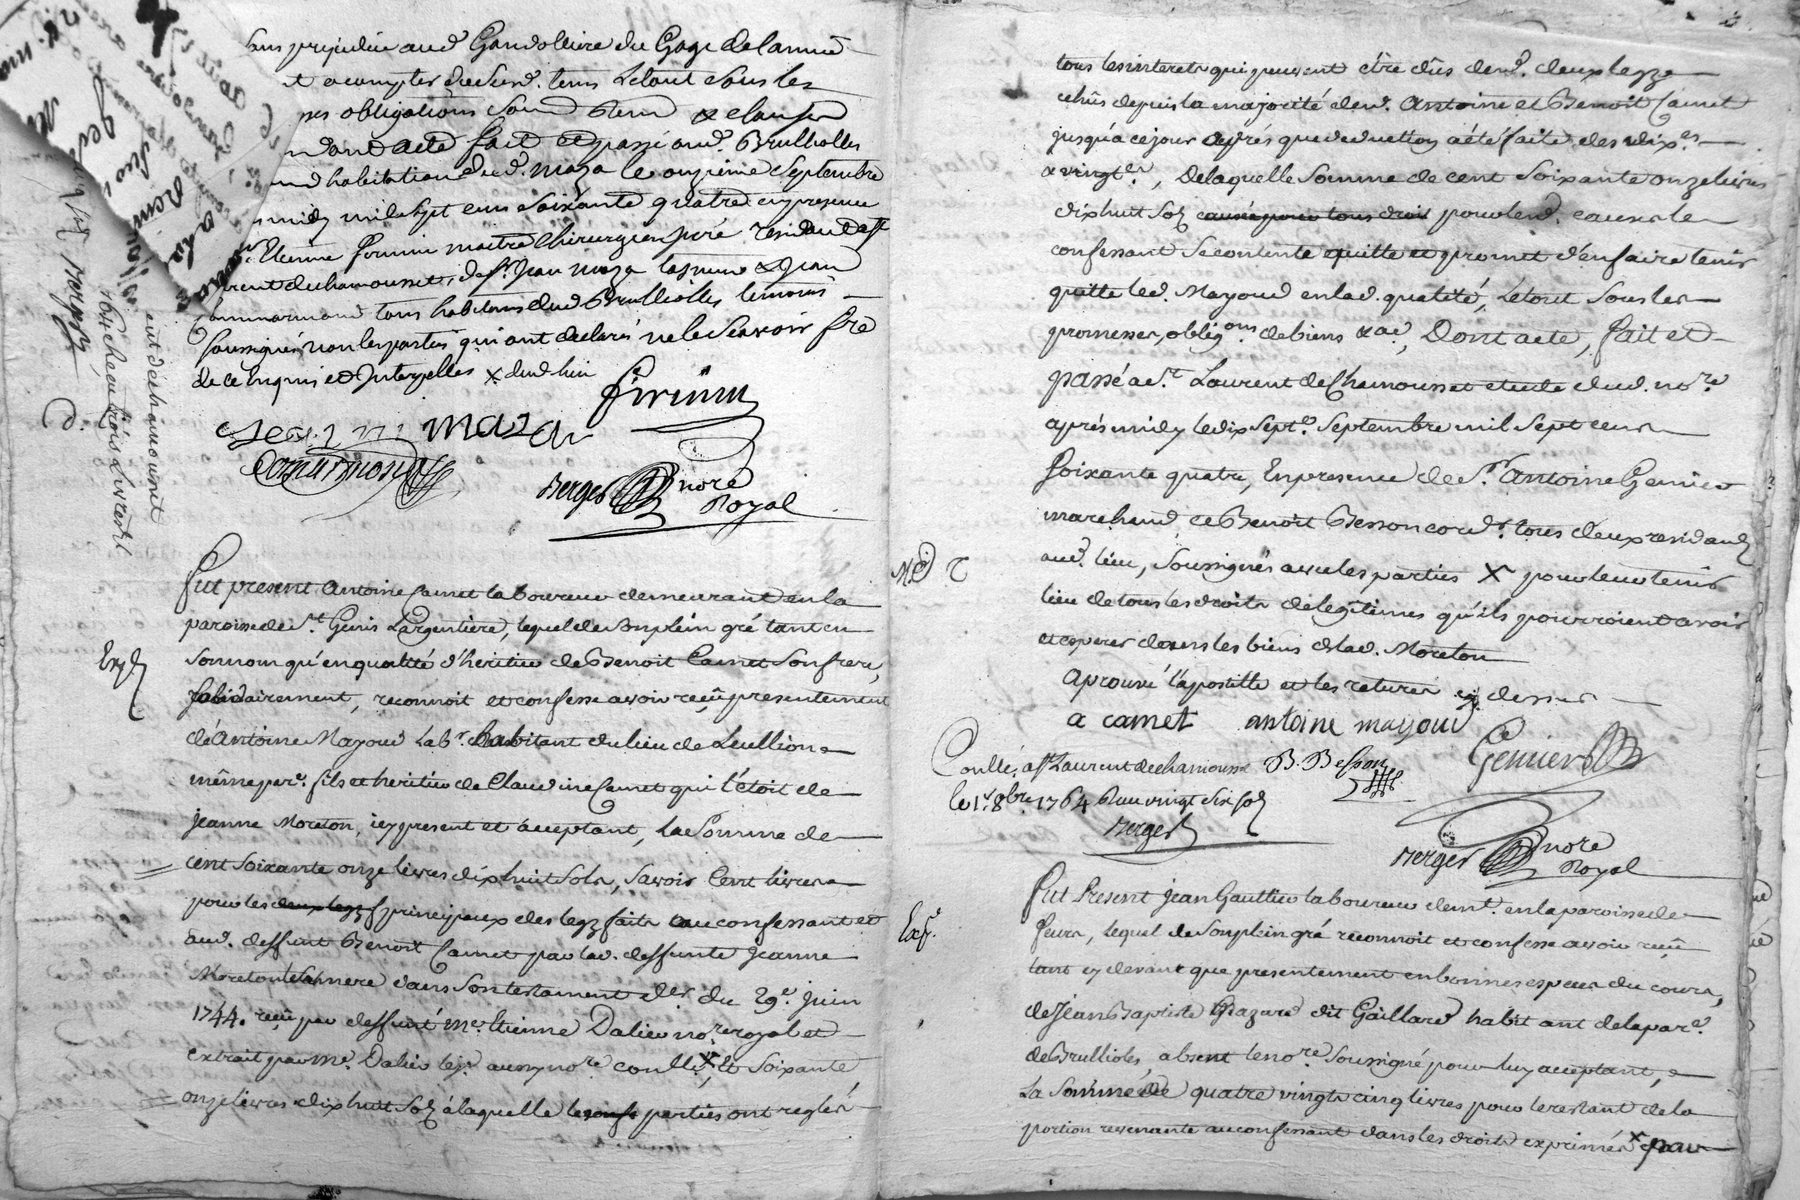 sans prejudice aud. Gandolliere du Gage de lannee
a compter du tems Le tout sous les
obligations soum & clauses
dont acte fait et passé aud. Brullioles
habitation dud. maza le onzieme Septembre
midy mil sept cens soixante quatre en presence
Etienne fermin maitre Chirurgien juré residant a st
Laurent de chamousset, de sr. Jean maza & Jean
tous habitans dud Brullioles temoins
soussignés non les parties qui ont declarés ne le Scavoir fre
de ce Enquis et Interpellés
firmin
Jean maza
Berger nore
Royal
d.
Fut present Antoine Camet laboureur demeurant en la
paroisse de St. Genis Largentiere, lequel de son plein gré tant en
son nom qu'en qualité d'heritier de Benoit Camet son frere,
solidairement, reconnoit et confesse avoir reçu presentement
d'Antoine Mayoud Labr. habitant du lieu de Lullion
même parse. fils et heritier de Claudine Camet qui l'étoit de
Jeanne Moreton, icy present et acceptant, La Somme de
cent soixante onze livres dixhuit sols, Savoir Cent livres
pour les principaux des legs faits au confessant et
aud. deffunt Benoit Camet par lad. deffunte Jeanne
Moreton leur mere dans son testament du 29e. juin
1744. reçu par deffunt Me. Etienne Dalier nore royal et
extrait par Me. Dalier aussy nore controllé, et Soixante
onze livres dixhuit Solz à laquelle les parties ont reglés
tous les interets qui peuvent être dûs desd. deux legz
echûs depuis la majorité desd. Antoine et Benoit Camet
jusqu'a ce jour après que deduction a été faite des dixes.
& vingtes., De laquelle Somme de cent Soixante onze livres
dixhuit Solz pour lesd. causes le
confessant Se contente quitte et promet d'en faire tenir
quitte led. Mayoud en lad. qualité, Le tout Sous les
promesses, obligons. de biens &ae., Dont acte, fait et
passé a St. Laurent de Chamousset etude dud. nore
après midy le dix Sept. Septembre mil Sept cens
Soixante quatre, En presence de Sr. Antoine Genier
marchand, et Benoit Besson cordr. tous deux residants
aud. lieu, Soussignés avec les parties X pour leur tenir
lieu de tous les droits de legitimes qu'ils pourroient avoir
et esperer dans les biens de lad. Moreton
Aprouvé l'apostille et les ratures cy dessus
a camet antoine mayoud
Genier
B. Besson
Conllé. a St Laurent de chamousset
le 1r. 8bre 1764 Reçu vingt six solz
Berger
Berger nore
Royal
Fut Present Jean Gaultier laboureur demt. en la paroisse de
feurs, lequel de son plein gré reconnoit et confesse avoir reçu
tant cy devant que presentement en bonnes especes du cours,
de Jean Baptiste dit Gaillard habitant de la parse.
de Brullioles, absent le nore Soussigné pour luy acceptant,
La Somme de quatre vingts cinq livres pour le restant de la
portion revenante au confessant dans les droits exprimés X par